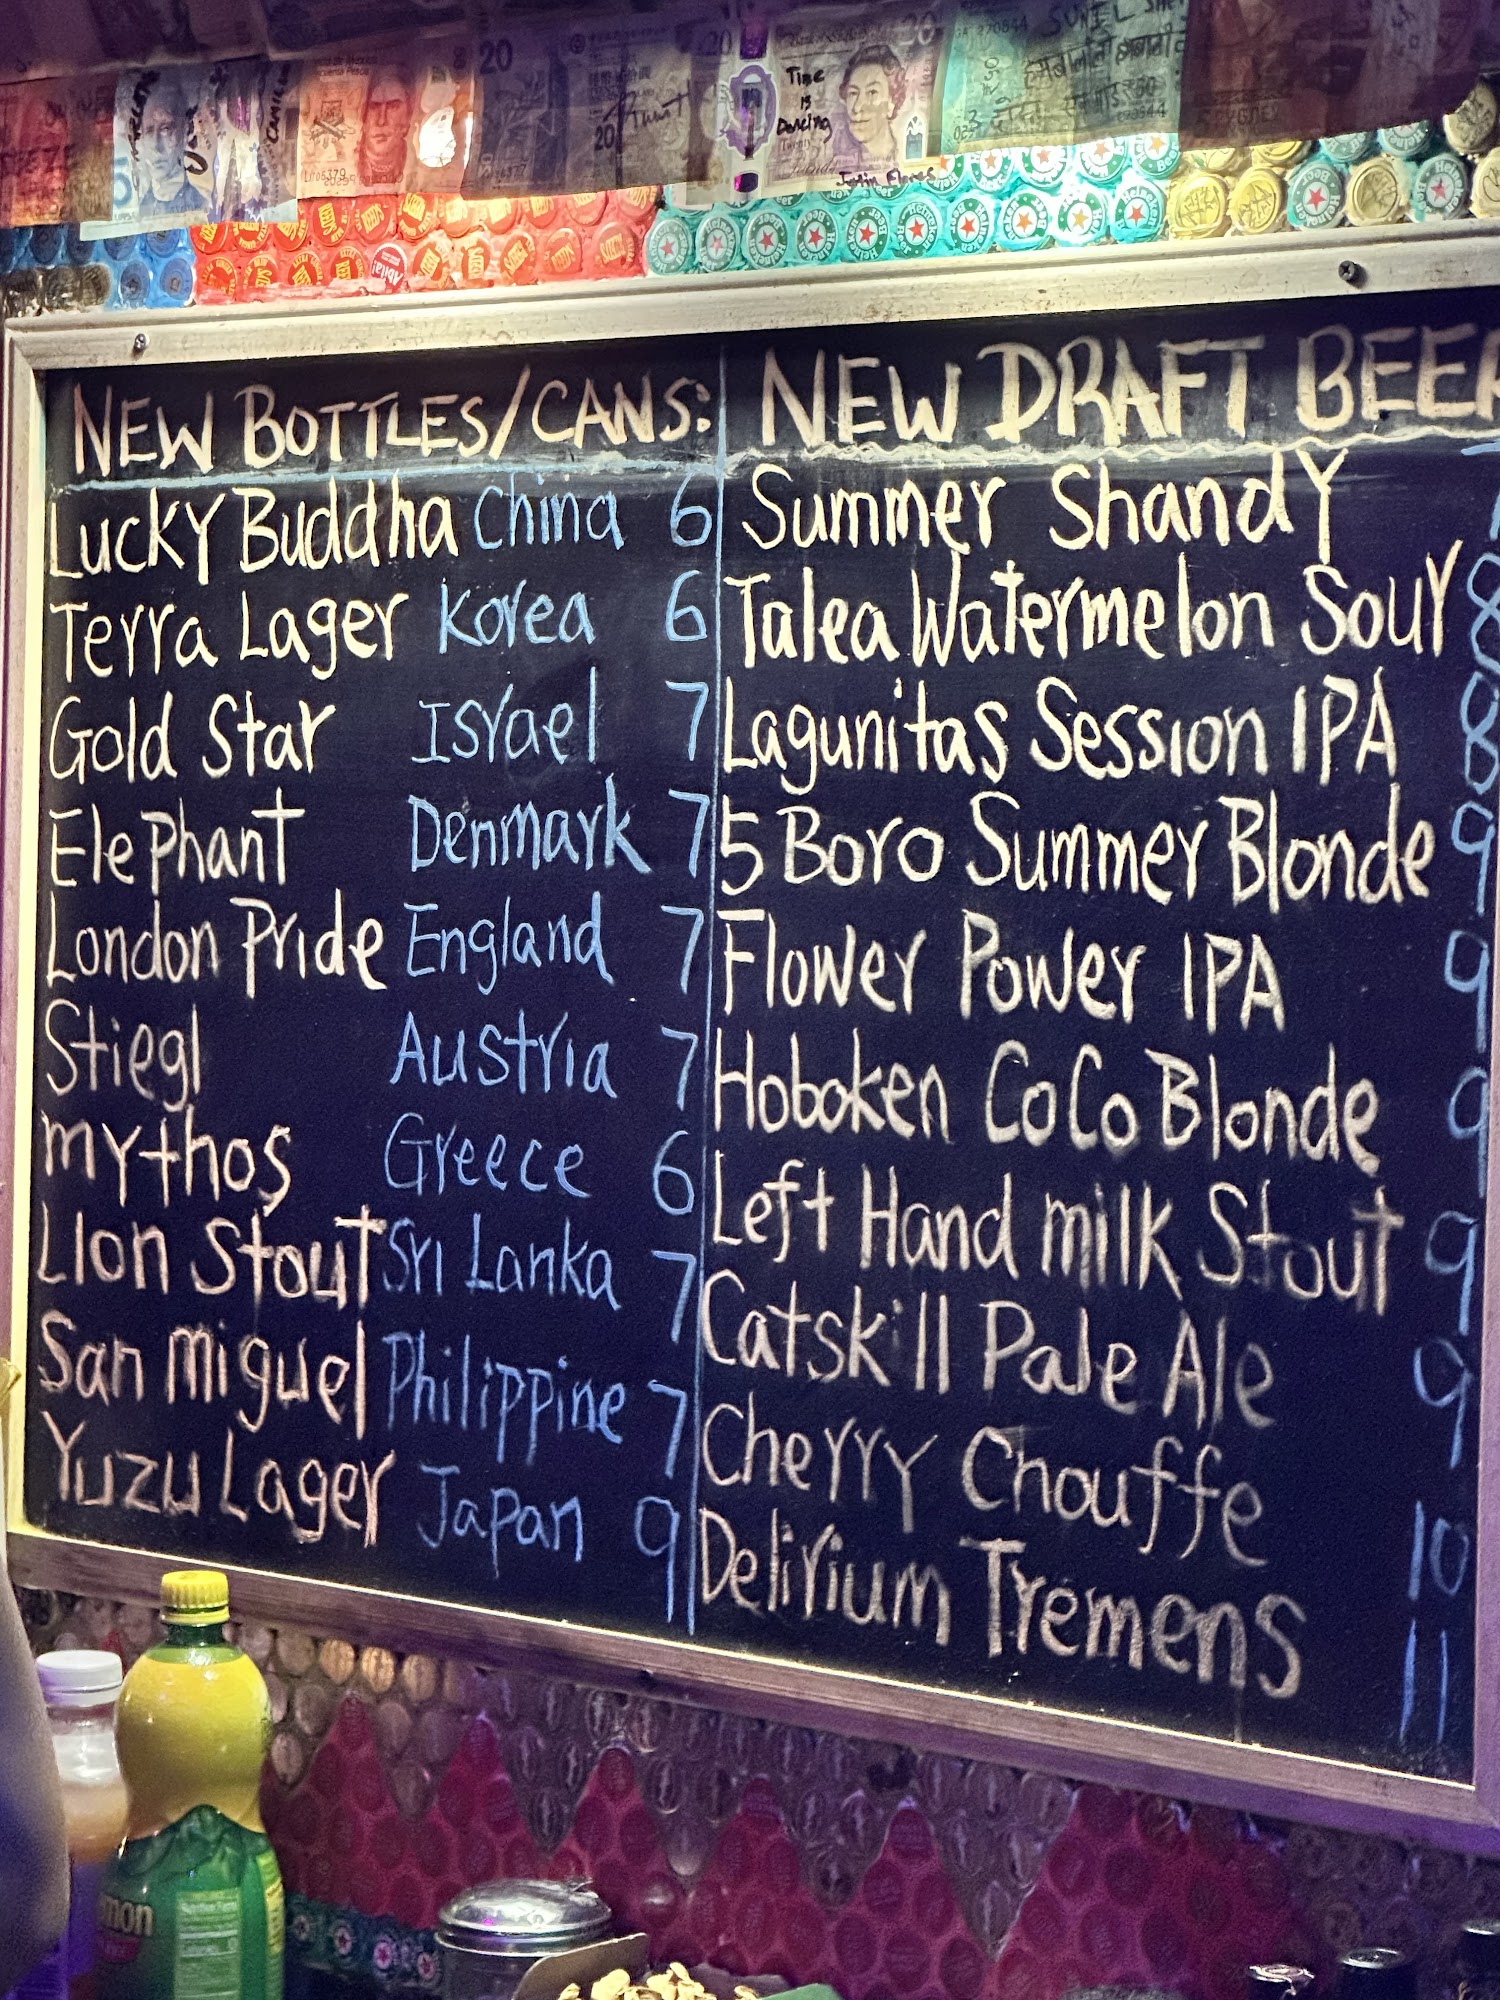 20
20
20
Time
is
Dancing
Justin Flores
NEW BOTTLES/CANS:
Lucky Buddha China 6
Terra Lager Korea 6
Gold Star Israel 7
Elephant Denmark 7
London Pride England 7
Stiegl Austria 7
mythos Greece 6
Lion Stout Sri Lanka 7
San miguel Philippine 7
Yuzu Lager Japan 9
NEW DRAFT BEER
Summer Shandy
Talea Watermelon Sour 8
Lagunitas Session IPA 8
5 Boro Summer Blonde 9
Flower Power IPA 9
Hoboken CoCo Blonde 9
Left Hand milk Stout 9
Catskill Pale Ale 9
Cherry Chouffe 10
Delirium Tremens 11